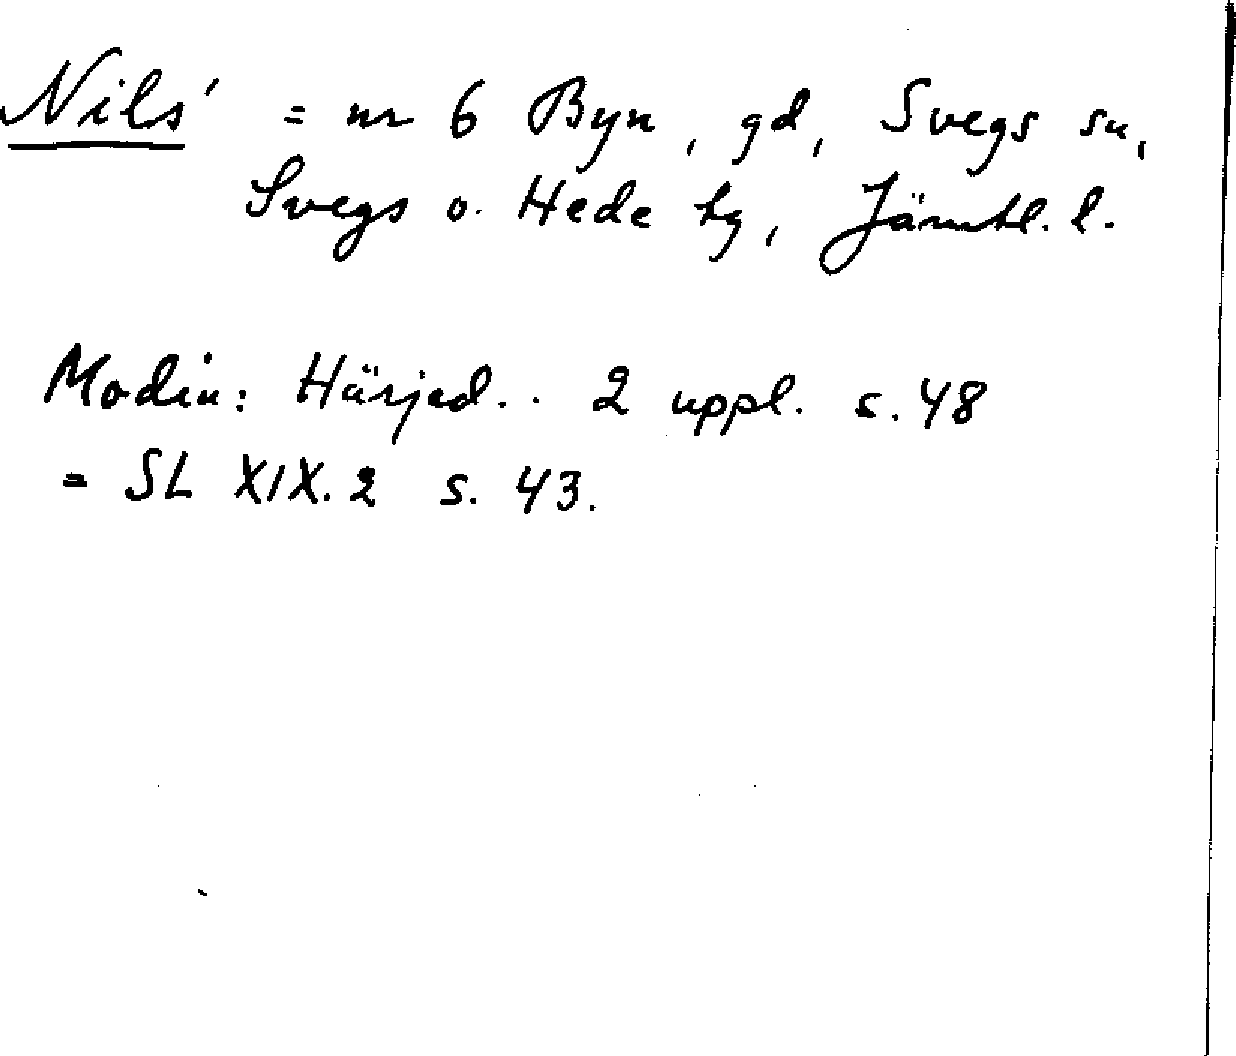 Nils' = nr 6 Byn, gd, Svegs sn,
Svegs o. Hede tg, Jämtl. l.
Modin: Härjed.. 2 uppl. s. 48
= SL XIX. 2 s. 43.